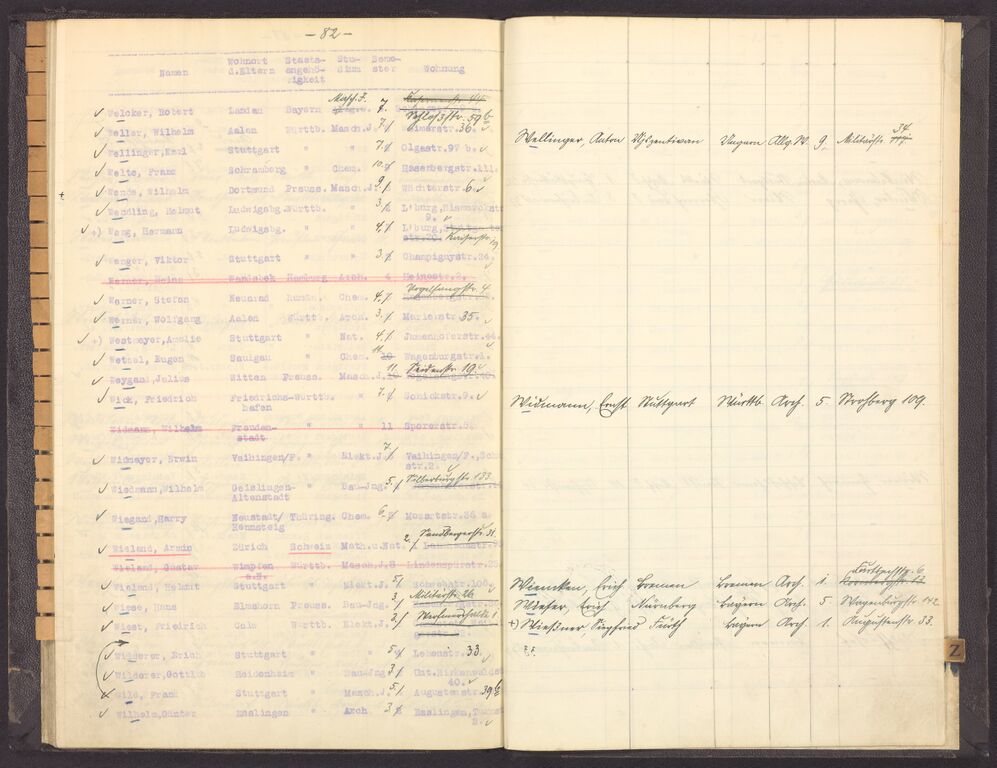 - 82 -
Namen Wohnort d.Eltern Staats- angehö- rigkeit Stu- dium Seme- ster Wohnung
Welcker, Robert Landau Bayern Masch.J. 7.
Schloßstr. 59b
Weller, Wilhelm Aalen Württb. Masch.J. 7. Weimarstr. 36.
Wellinger, Karl Stuttgart " " 7. Olgastr. 97 b.
Welte, Franz Schramberg " Chem. 10. Hasenbergstr. 111.
Wende, Wilhelm Dortmund Preuss. Masch.J. 9. Wächterstr. 6.
Wendling, Helmut Ludwigsbg. Württb. " 3. L'burg, Bismarckstr
9.
+) Weng, Hermann Ludwigsbg. " " 4. L'burg,
Kaiserstr. 19
Wenger, Viktor Stuttgart " " 3. Champignystr. 24.
Werner, Heinz Wandsbek Hamburg Arch. 4 Heinestr. 2.
Vogelsangstr. 4
Werner, Stefan Neuarad rumän. Chem. 4.
Werner, Wolfgang Aalen Württb. Arch. 3. Marienstr. 35.
+) Westmeyer, Amalie Stuttgart " Nat. 4. Immenhoferstr. 44.
Wetzel, Eugen Saulgau " Chem. 11. Wagenburgstr. 1.
11. Seidenstr. 19
Weygand, Julius Witten Preuss. Masch.J.
Wick, Friedrich Friedrichs- Württb. " 7. Senickstr. 9.
hafen
Widmann, Wilhelm Freuden- " " 11 Sporerstr.
stadt
Widmayer, Erwin Vaihingen/F. " Elekt.J. 7. Vaihingen/F.,
str. 2.
Silberburgstr. 133
Wiedmann, Wilhelm Geislingen- " Bau-Jng. 5.
Altenstadt
Wiegand, Harry Neustadt/ Thüring. Chem. 6. Mozartstr. 36
Rennsteig
Wieland, Armin Zürich Schweiz Math.u.Nat. 2.
Wieland, Gustav Wimpfen Württb. Masch.J. 8 Lindenspürstr.
a.N.
Wieland, Helmut Stuttgart " Elekt.J. 5. Schwabstr. 108.
Militärstr. 26
Wiese, Hans Elmshorn Preuss. Bau-Jng. 3.
Wiest, Friedrich Calw Württb. Elekt.J. 2.
Widderer, Erich Stuttgart " " 5. Lehenstr. 33.
Wilderer, Gottlob Heidenheim " Bau-Jng 3. Unt. Birkenwaldstr
40.
Wild, Frank Stuttgart " Masch.J. 5. Augustenstr. 39b
Wilhelm, Günter Esslingen " Arch 3. Esslingen,
Wellinger, Anton Ungarn Allg. W. 9. Militärstr. 34.
Widmann, Ernst Stuttgart Württb. Arch. 5. Strohberg 109.
Wiencken, Erich Bremen Bremen Arch. 1.
Wieser, Erich Nürnberg Bayern Arch. 5. Wagenburgstr. 142
+) Wießner, Siegfried Fürth Bayern Arch. 1. Augustenstr. 33.
Z